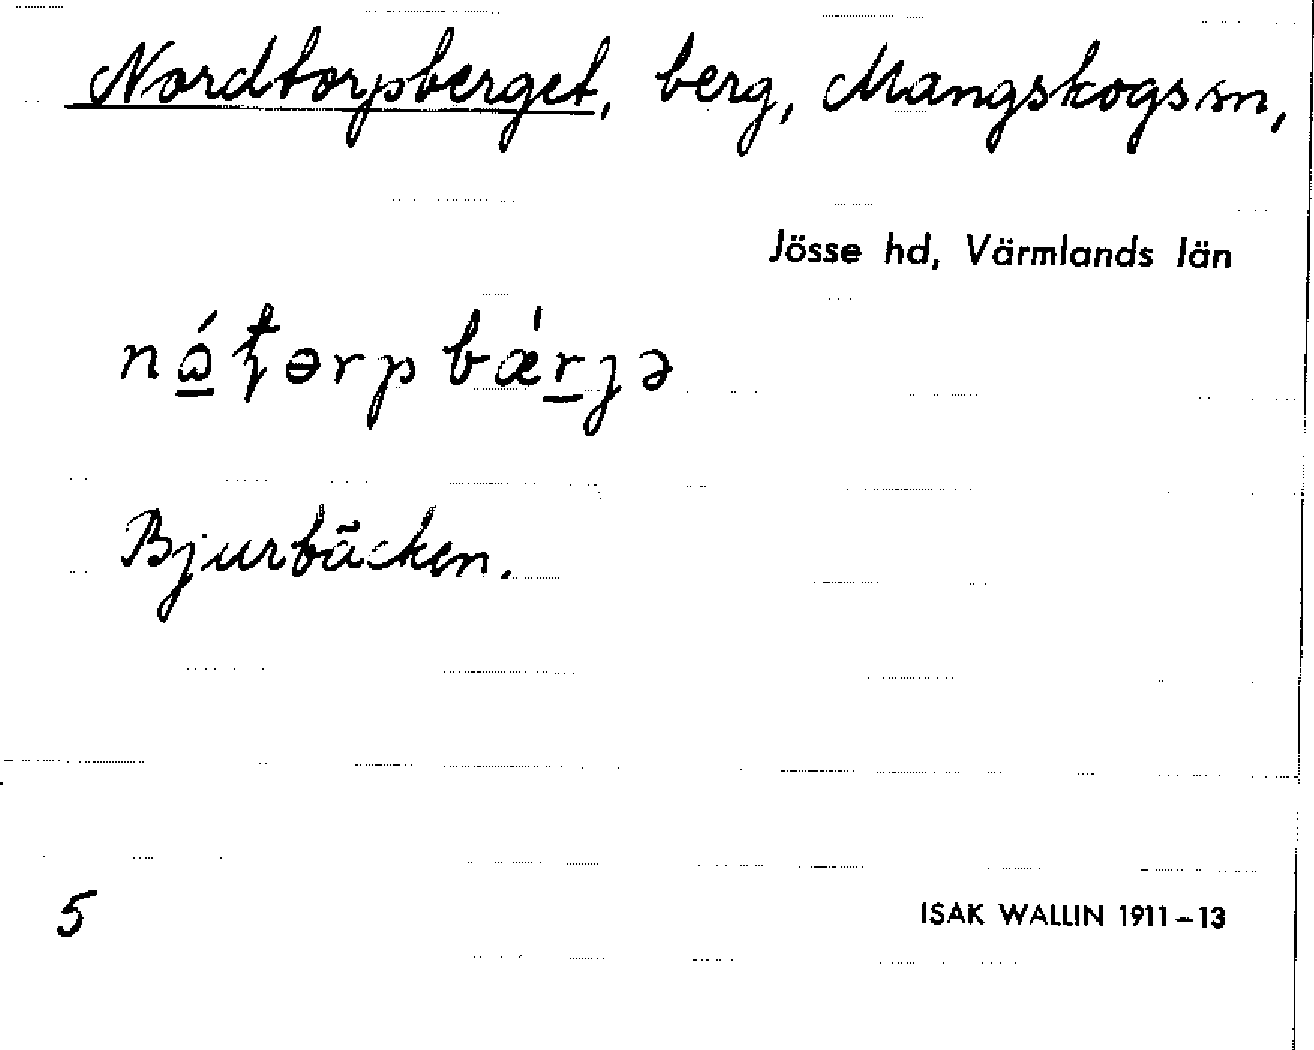 Nordtorpberget, berg, Mangskogs sn,
Jösse hd, Värmlands län
Bjurbäcken.
5
ISAK WALLIN 1911–13